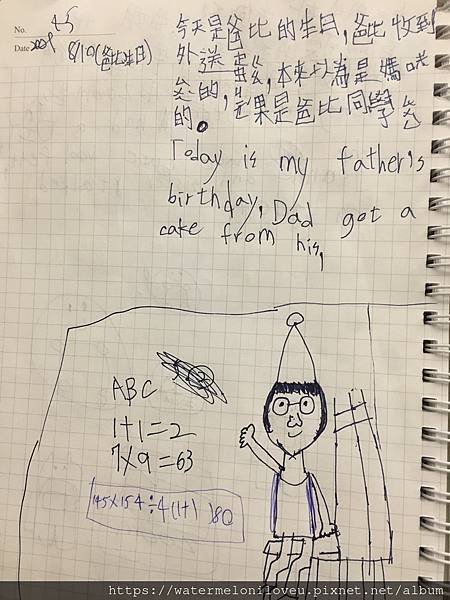 No. 45
Date 2021 8/10(爸比生日)
今天是爸比的生日,爸比收到
外送蛋糕,本來以為是媽咪
的,結果是爸比同學
的。
Today is my father's
birthday, Dad got a
cake from his,
ABC
1+1=2
7×9=63
145×154÷4(1+1) 380
https://watermeloniloveu.pixnet.net/album